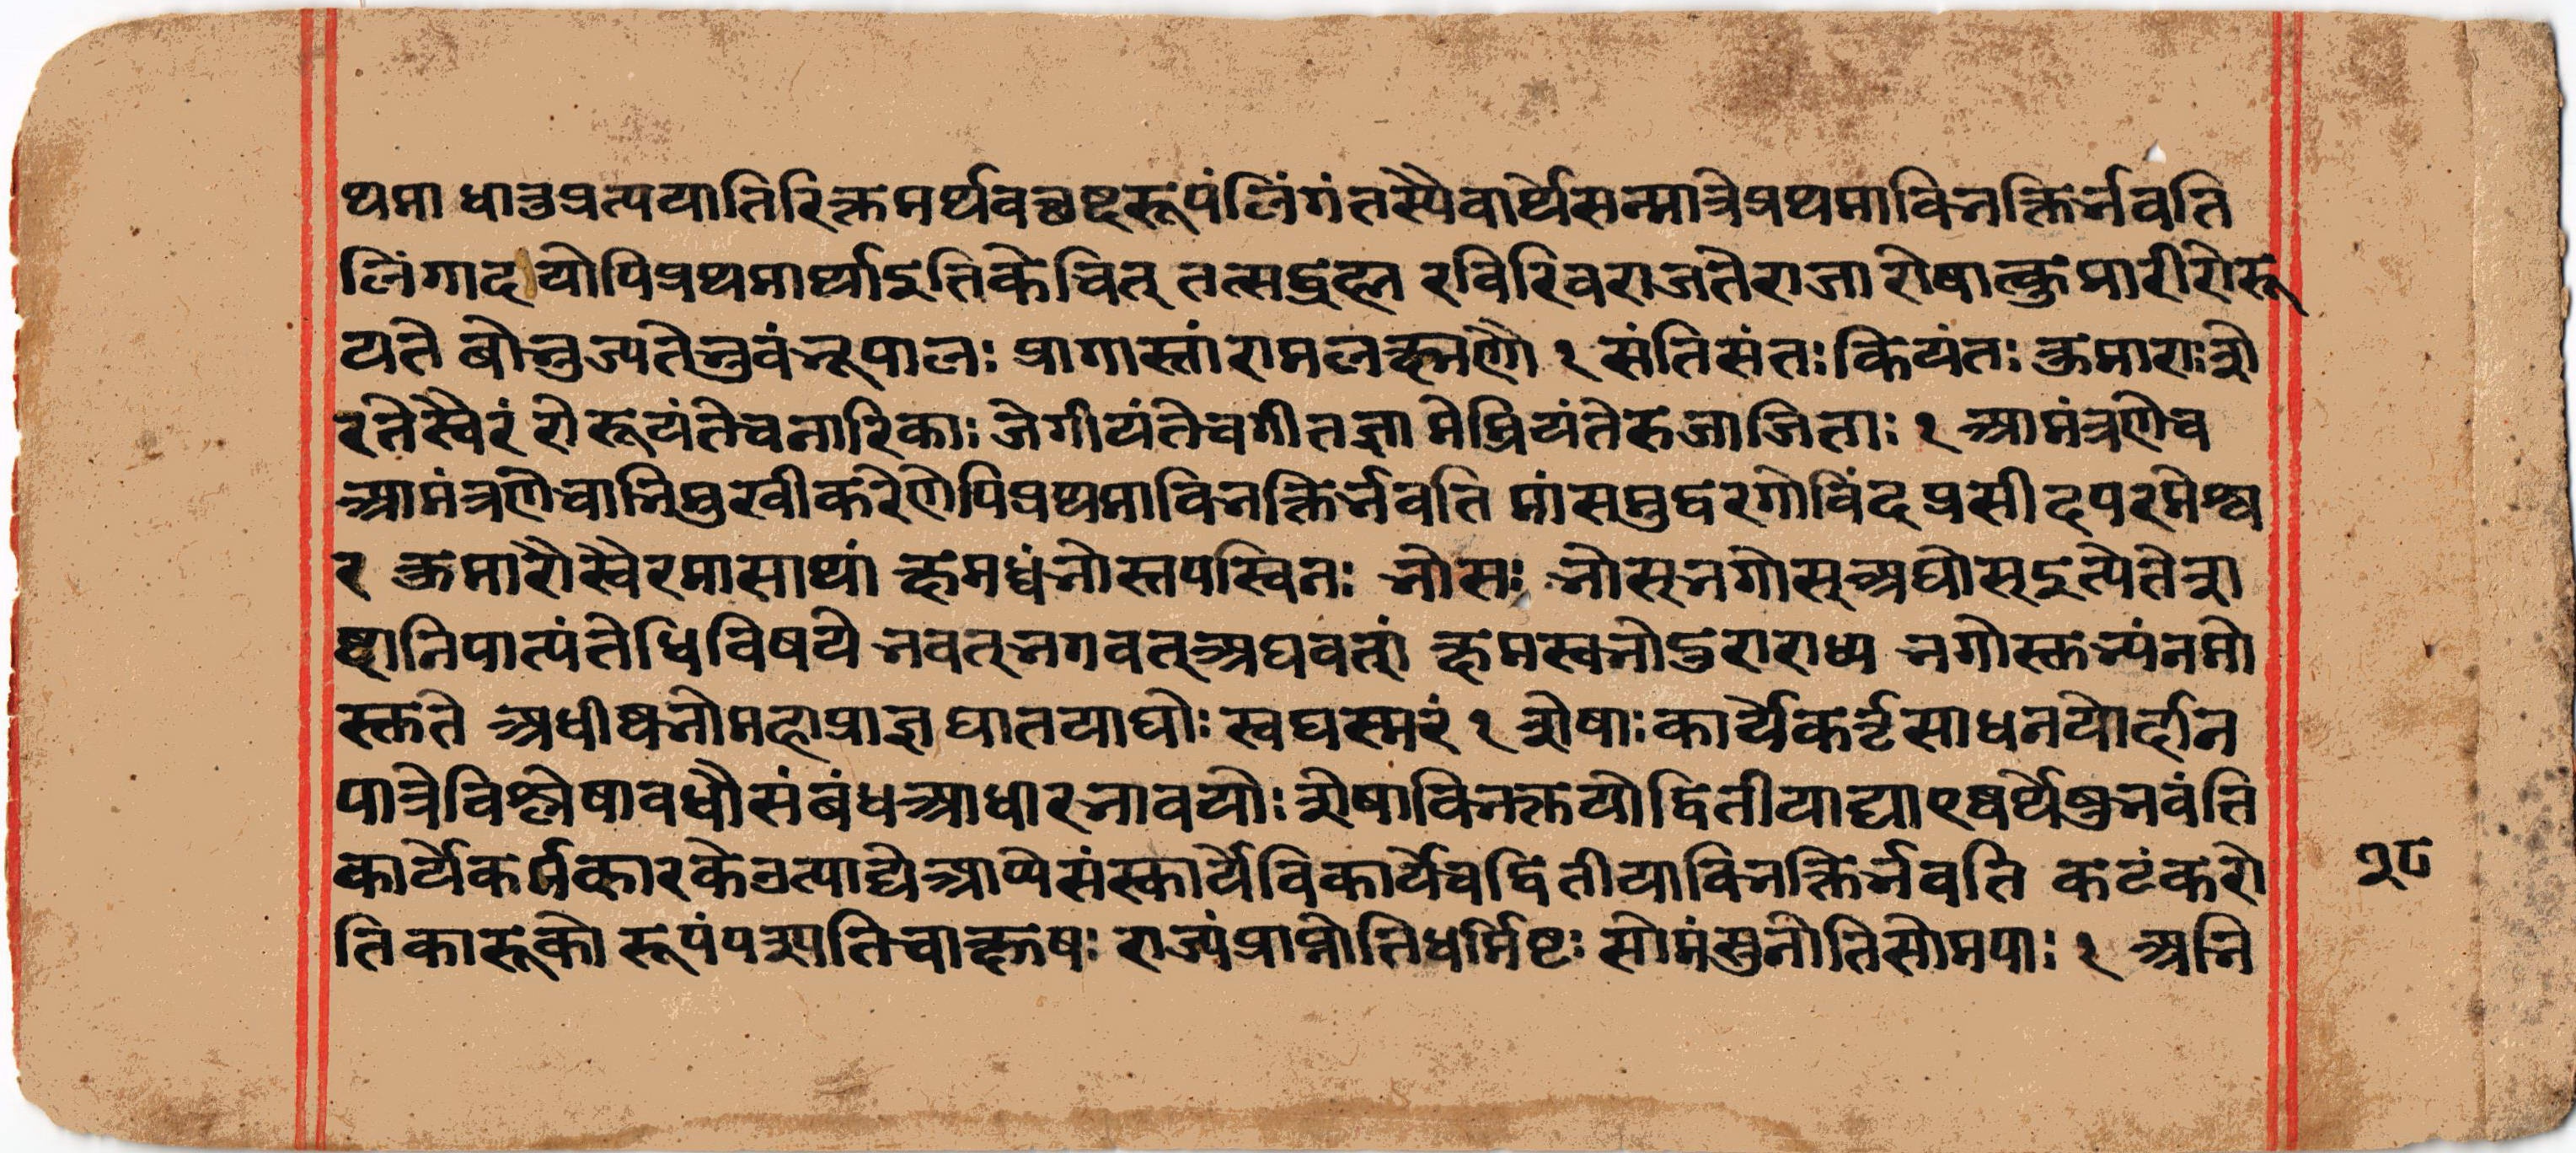 थमा धातुप्रत्ययातिरिक्तमर्थवच्छब्दरूपंलिंगंतस्यैवार्थेसन्मात्रेप्रथमाविभक्तिर्भवति
लिंगादयोपिप्रथमार्थाइतिकेचित् तत्सद्ब्रह्म रविरिवराजतेराजा रोषात्कुमारीरोरू
यते बोभुज्यतेभुवंभूपालः प्रागास्तां रामलक्ष्मणौ १ संतिसंतः कियंतः कुमाराः शे
रतेस्वैरं रोरूयंतेचनारिकाः जेगीयंतेचगीतज्ञा मेम्रियंतेरुजाजिताः १ आमंत्रणेच
आमंत्रणेचाभिमुखीकरेणेपिप्रथमाविभक्तिर्भवति मांसमुद्धरगोविंद प्रसीदपरमेश्व
र कुमारौस्वैरमासाथां क्षमध्वंभोस्तपस्विनः भोसः भोस्भगोस्अघोस्इत्येतेश
ब्दानिपात्यंतेधिविषये भवत्भगवत्अघवतां क्षमस्वभोदुराराध्य भगोस्तुभ्यंनमो
स्तुते अधीष्वभोमहाप्राज्ञ घातयाघोः स्वघस्मरं १ शेषाः कार्येकर्तृसाधनयोर्दान
पात्रेविश्लेषावधौसंबंधआधारभावयोः शेषाविभक्तयोद्वितीयाद्याएष्वर्थेषुभवंति
कार्येकर्मकारकेउत्पाद्येआप्येसंस्कार्येविकार्येचद्वितीयाविभक्तिर्भवति कटंकरो
तिकारूको रूपंपश्यतिचाक्षुषः राज्यंप्राप्नोतिधर्मिष्टः सोमंसुनोतिसोमपाः १ अभि
१८